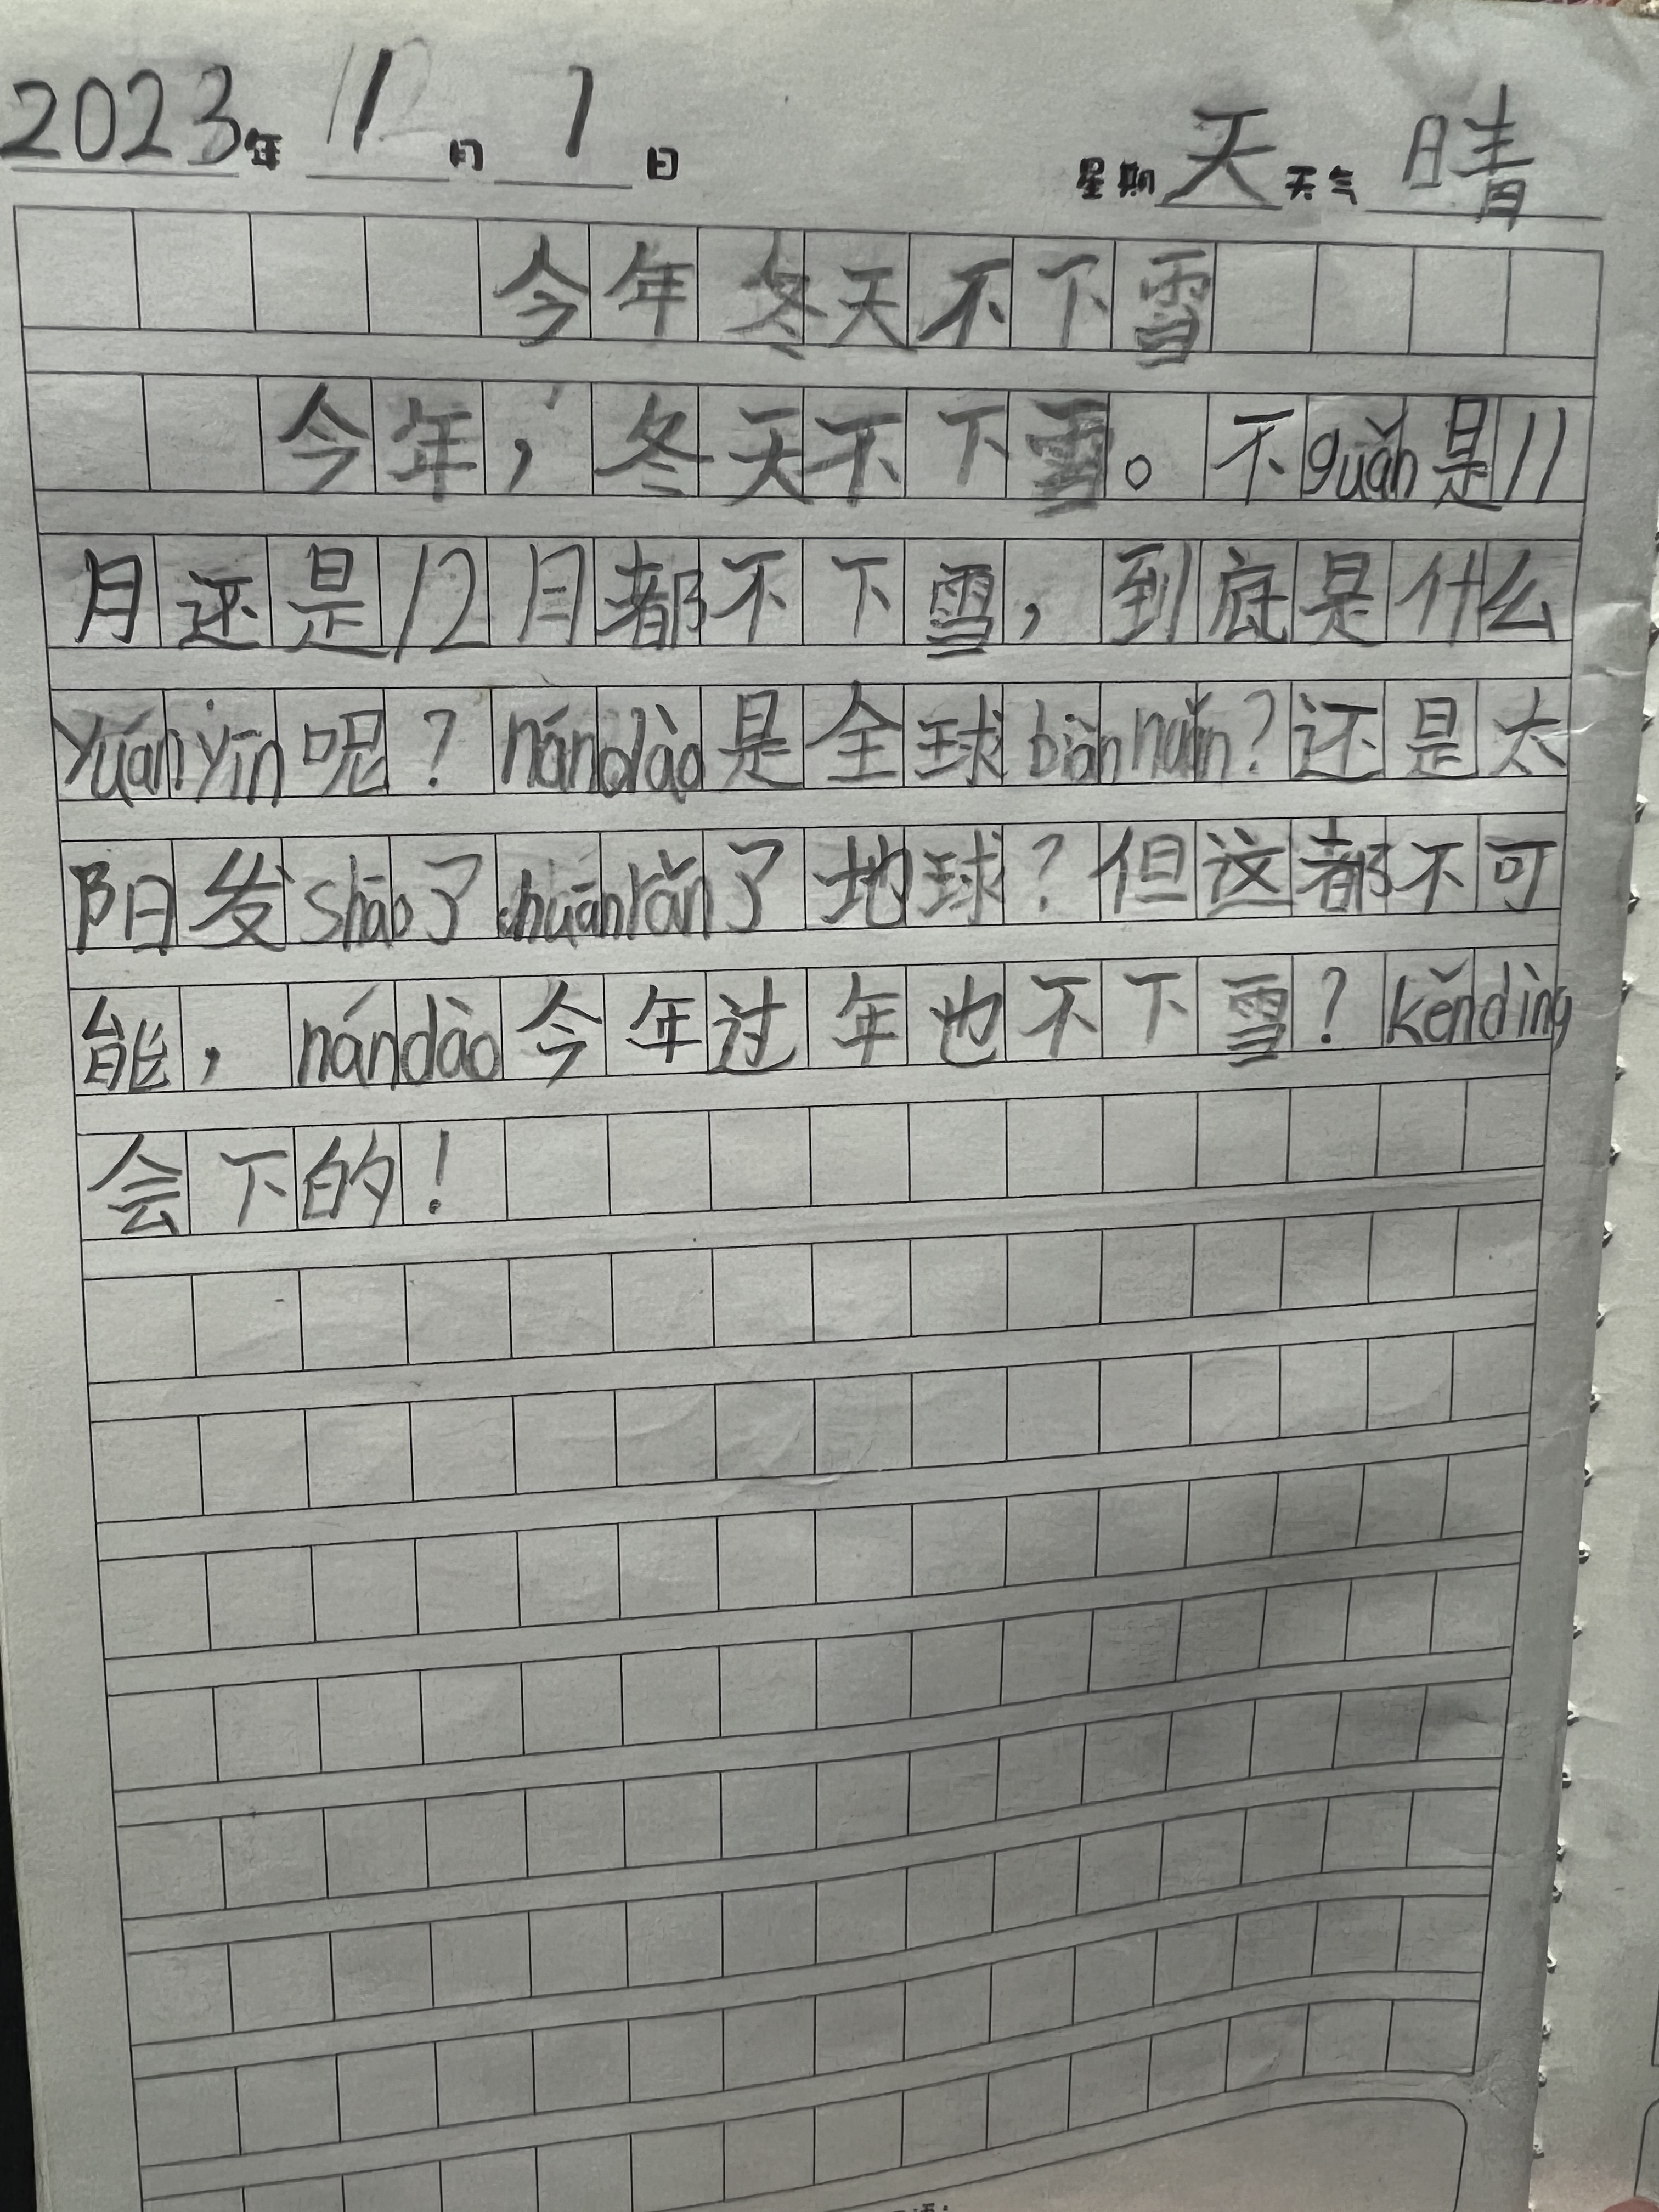 2023年 1月 1日 星期天 天气 晴
今年冬天不下雪
今年,冬天不下雪。不guǎn是11
月还是12月都不下雪,到底是什么
yuányīn呢?nándào是全球biànnuǎn?还是太
阳发shāo了chuánrǎn了地球?但这都不可
能,nándào今年过年也不下雪?kěndìng
会下的!